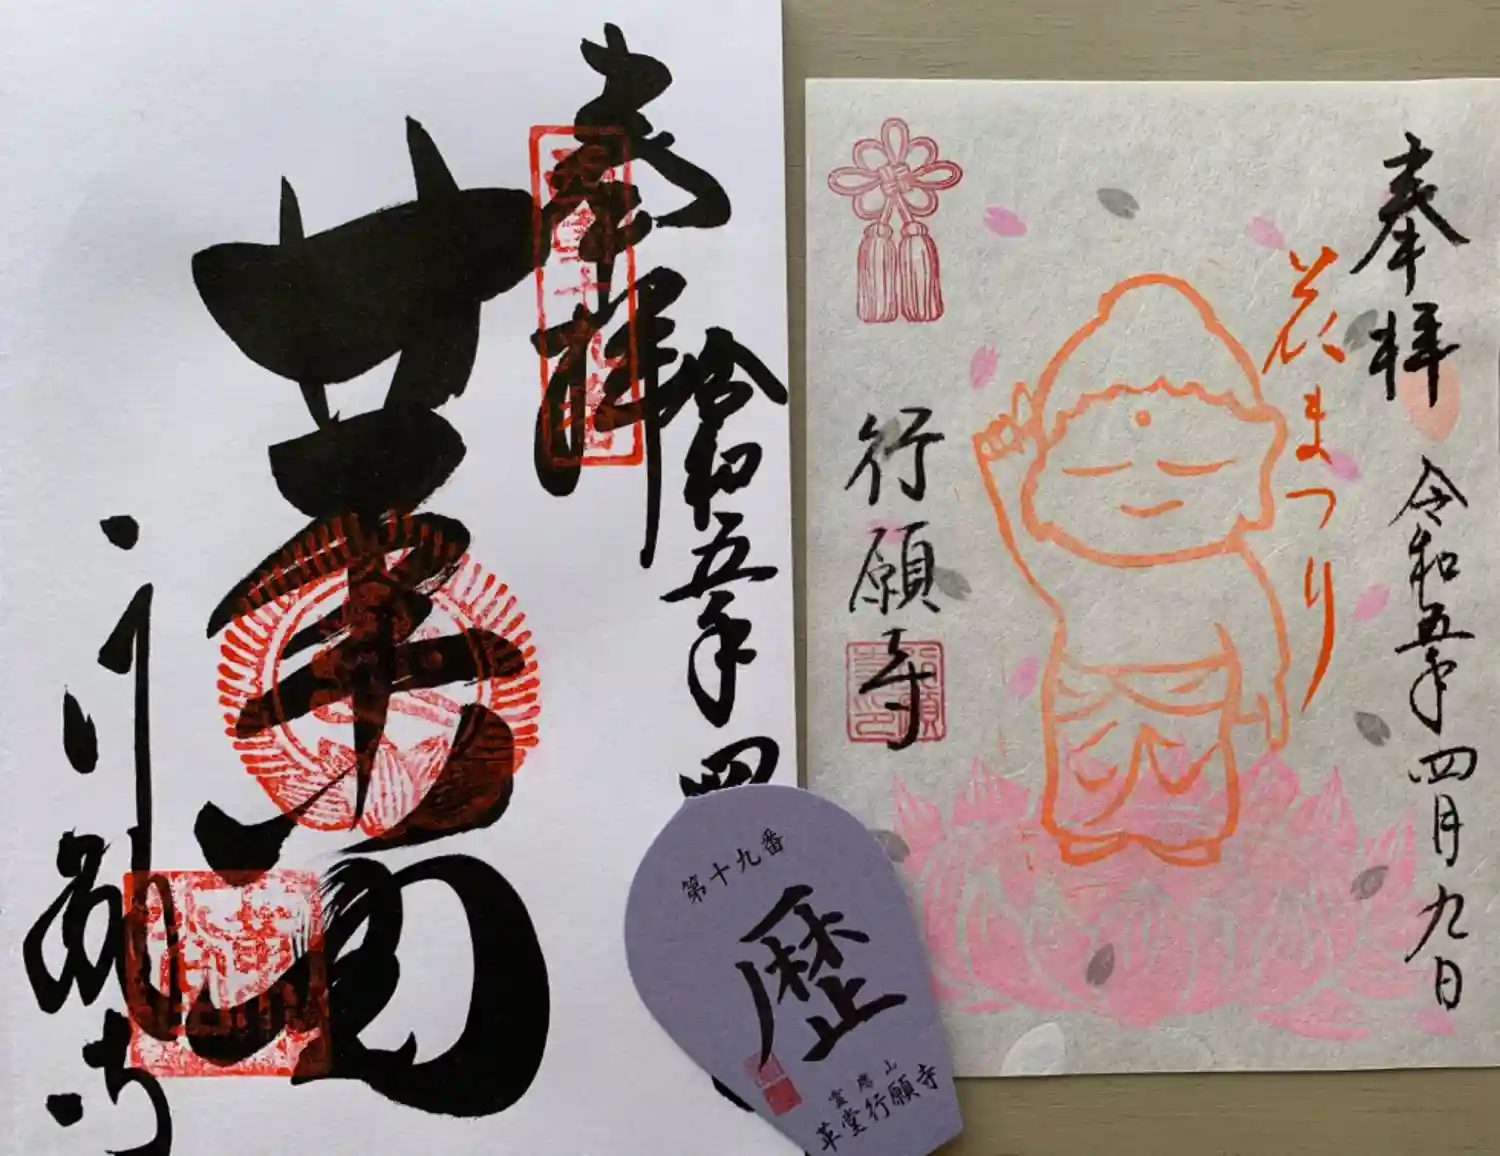 奉拝
令和五年四
革堂
行願寺
奉拝
令和五年四月九日
花まつり
行願寺
第十九番
歴
革堂行願寺